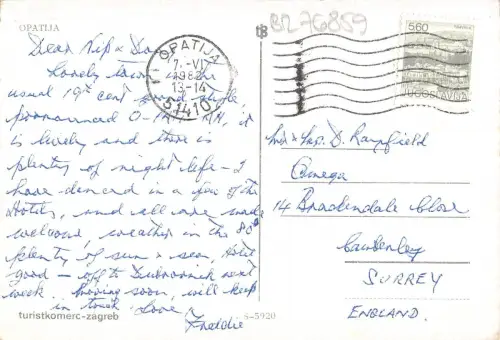 OPATIJA
BL 76859
Dear Kip & Do
Lovely town - the
usual 19th cent
pronounced O-
is lively and there is
plenty of night life - I
have danced in a few of the
Hotels, and all are made
welcome, weather in the 80s
plenty of sun & sea, Hotel
good - off to Dubrovnik next
week. moving soon, will keep
in touch. Love
Freddie
turistkomerc-zagreb
S-5920
OPATIJA
7.-VI
1982
13-14
51410
560
JUGOSLAVIJA
Mr & Mrs D. Rayfield
Omega
14 Brackendale Close
Camberley
SURREY
ENGLAND.